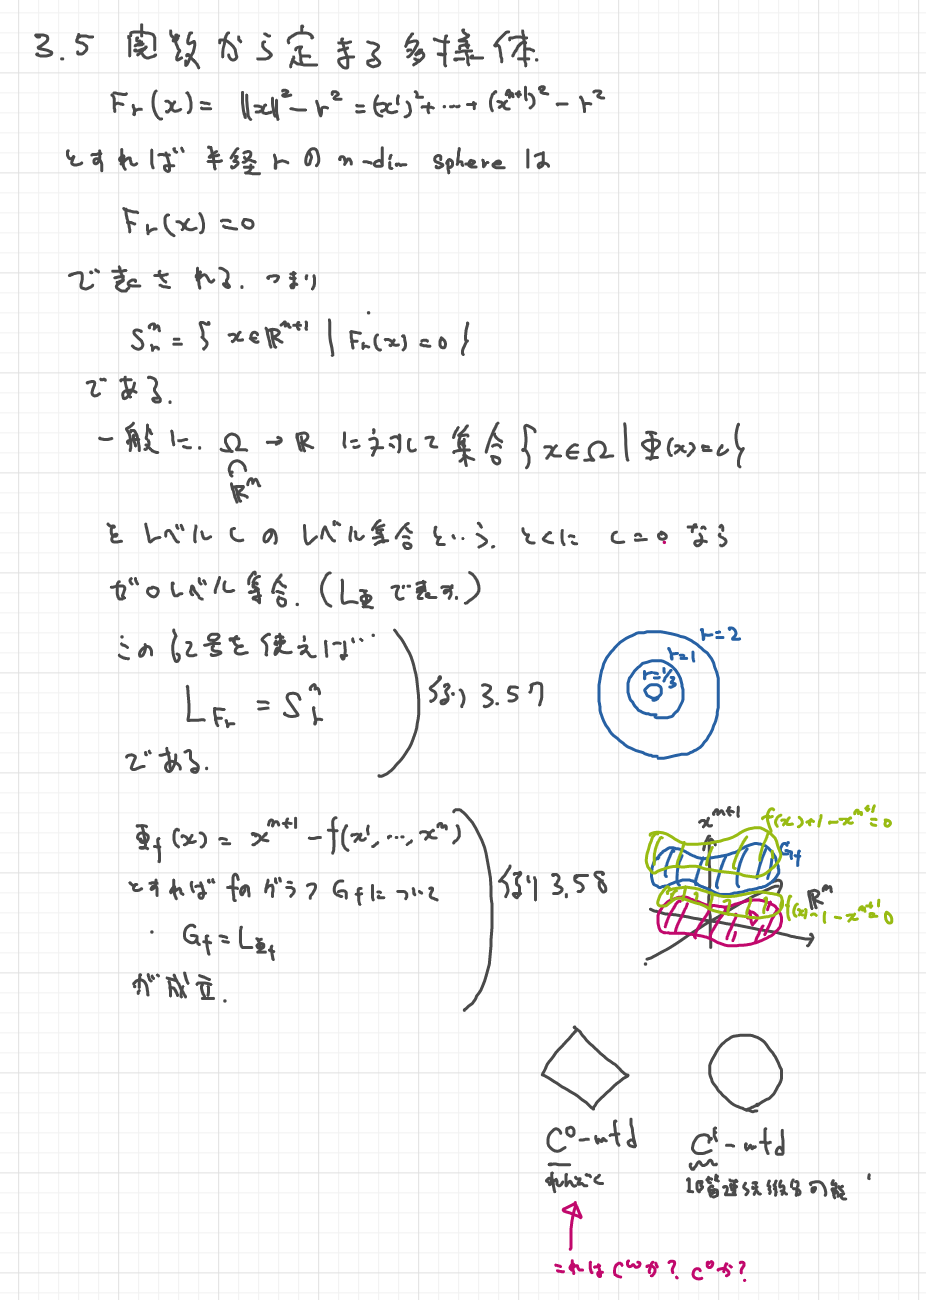 3.5 関数から定まる多様体.
F_r(x) = ||x||² - r² = (x¹)² + … + (x^{n+1})² - r²
とすれば 半径 r の n-dim sphere は
F_r(x) = 0
で表される. つまり
S_r^n = { x∈ℝ^{n+1} | F_r(x) = 0 }
である.
一般に. Ω → ℝ に対して 集合 { x∈Ω | Φ(x) = c }
∩
ℝ^n
を レベル c の レベル集合 という. とくに c = 0 なら
ゼロレベル集合. (L_Φ で表す.)
この記号を使えば…
L_{F_r} = S_r^n
である.
例) 3.57
r=2
r=1
r=1/3
Φ_f(x) = x^{n+1} - f(x¹, …, x^n)
とすれば fのグラフ G_f について
G_f = L_{Φ_f}
が成立.
例) 3.58
x^{n+1}
f(x)+1-x^{n+1}=0
G_f
ℝ^n
f(x)-1-x^{n+1}=0
C⁰-mfd
れんぞく
C¹-mfd
1階連続微分可能
これは C^ω か? C⁰ か?